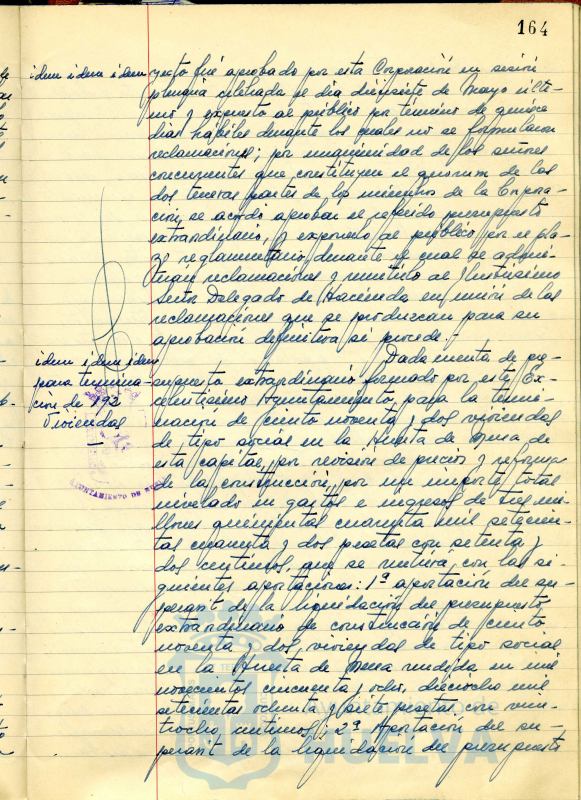 164
idem idem idem
yecto fué aprobado por esta Corporación en sesión
plenaria celebrada el día diecisiete de Mayo últi-
mo y expuesto al público por término de quince
dias hábiles durante los cuales no se formularon
reclamaciones; por unanimidad de los señores
concurrentes que constituyen el quorum de las
dos terceras partes de los miembros de la Corpora-
ción, se acordó aprobar el referido presupuesto
extraordinario, y exponerlo al público por el pla-
zo reglamentario, durante el cual se admi-
tirán reclamaciones y remitirlo al Ilustrísimo
Señor Delegado de Hacienda en unión de las
reclamaciones que se produzcan para su
aprobación definitiva si procede.-
idem idem idem
para termina-
ción de 192
Viviendas
Dada cuenta de pre-
supuesto extraordinario formado por este Ex-
celentísimo Ayuntamiento, para la termi-
nación de ciento noventa y dos viviendas
de tipo social en la Huerta de Mena de
esta capital, por revisión de precios y reformas
de la construcción, por un importe total
nivelado en gastos e ingresos de tres mi-
llones quinientas cuarenta mil setecien-
tas cuarenta y dos pesetas con setenta y
dos céntimos, que se nutrirá, con las si-
guientes aportaciones: 1ª aportación del su-
peravit de la liquidación del presupuesto
extraordinario de construcción de ciento
noventa y dos, viviendas de tipo social
en la Huerta de Mena rendida en mil
novecientos cincuenta y ocho, dieciocho mil
setecientas ochenta y siete pesetas con vein-
tiocho, céntimos; 2ª Aportación del su-
peravit de la liquidación del presupuesto
AYUNTAMIENTO DE
HUELVA